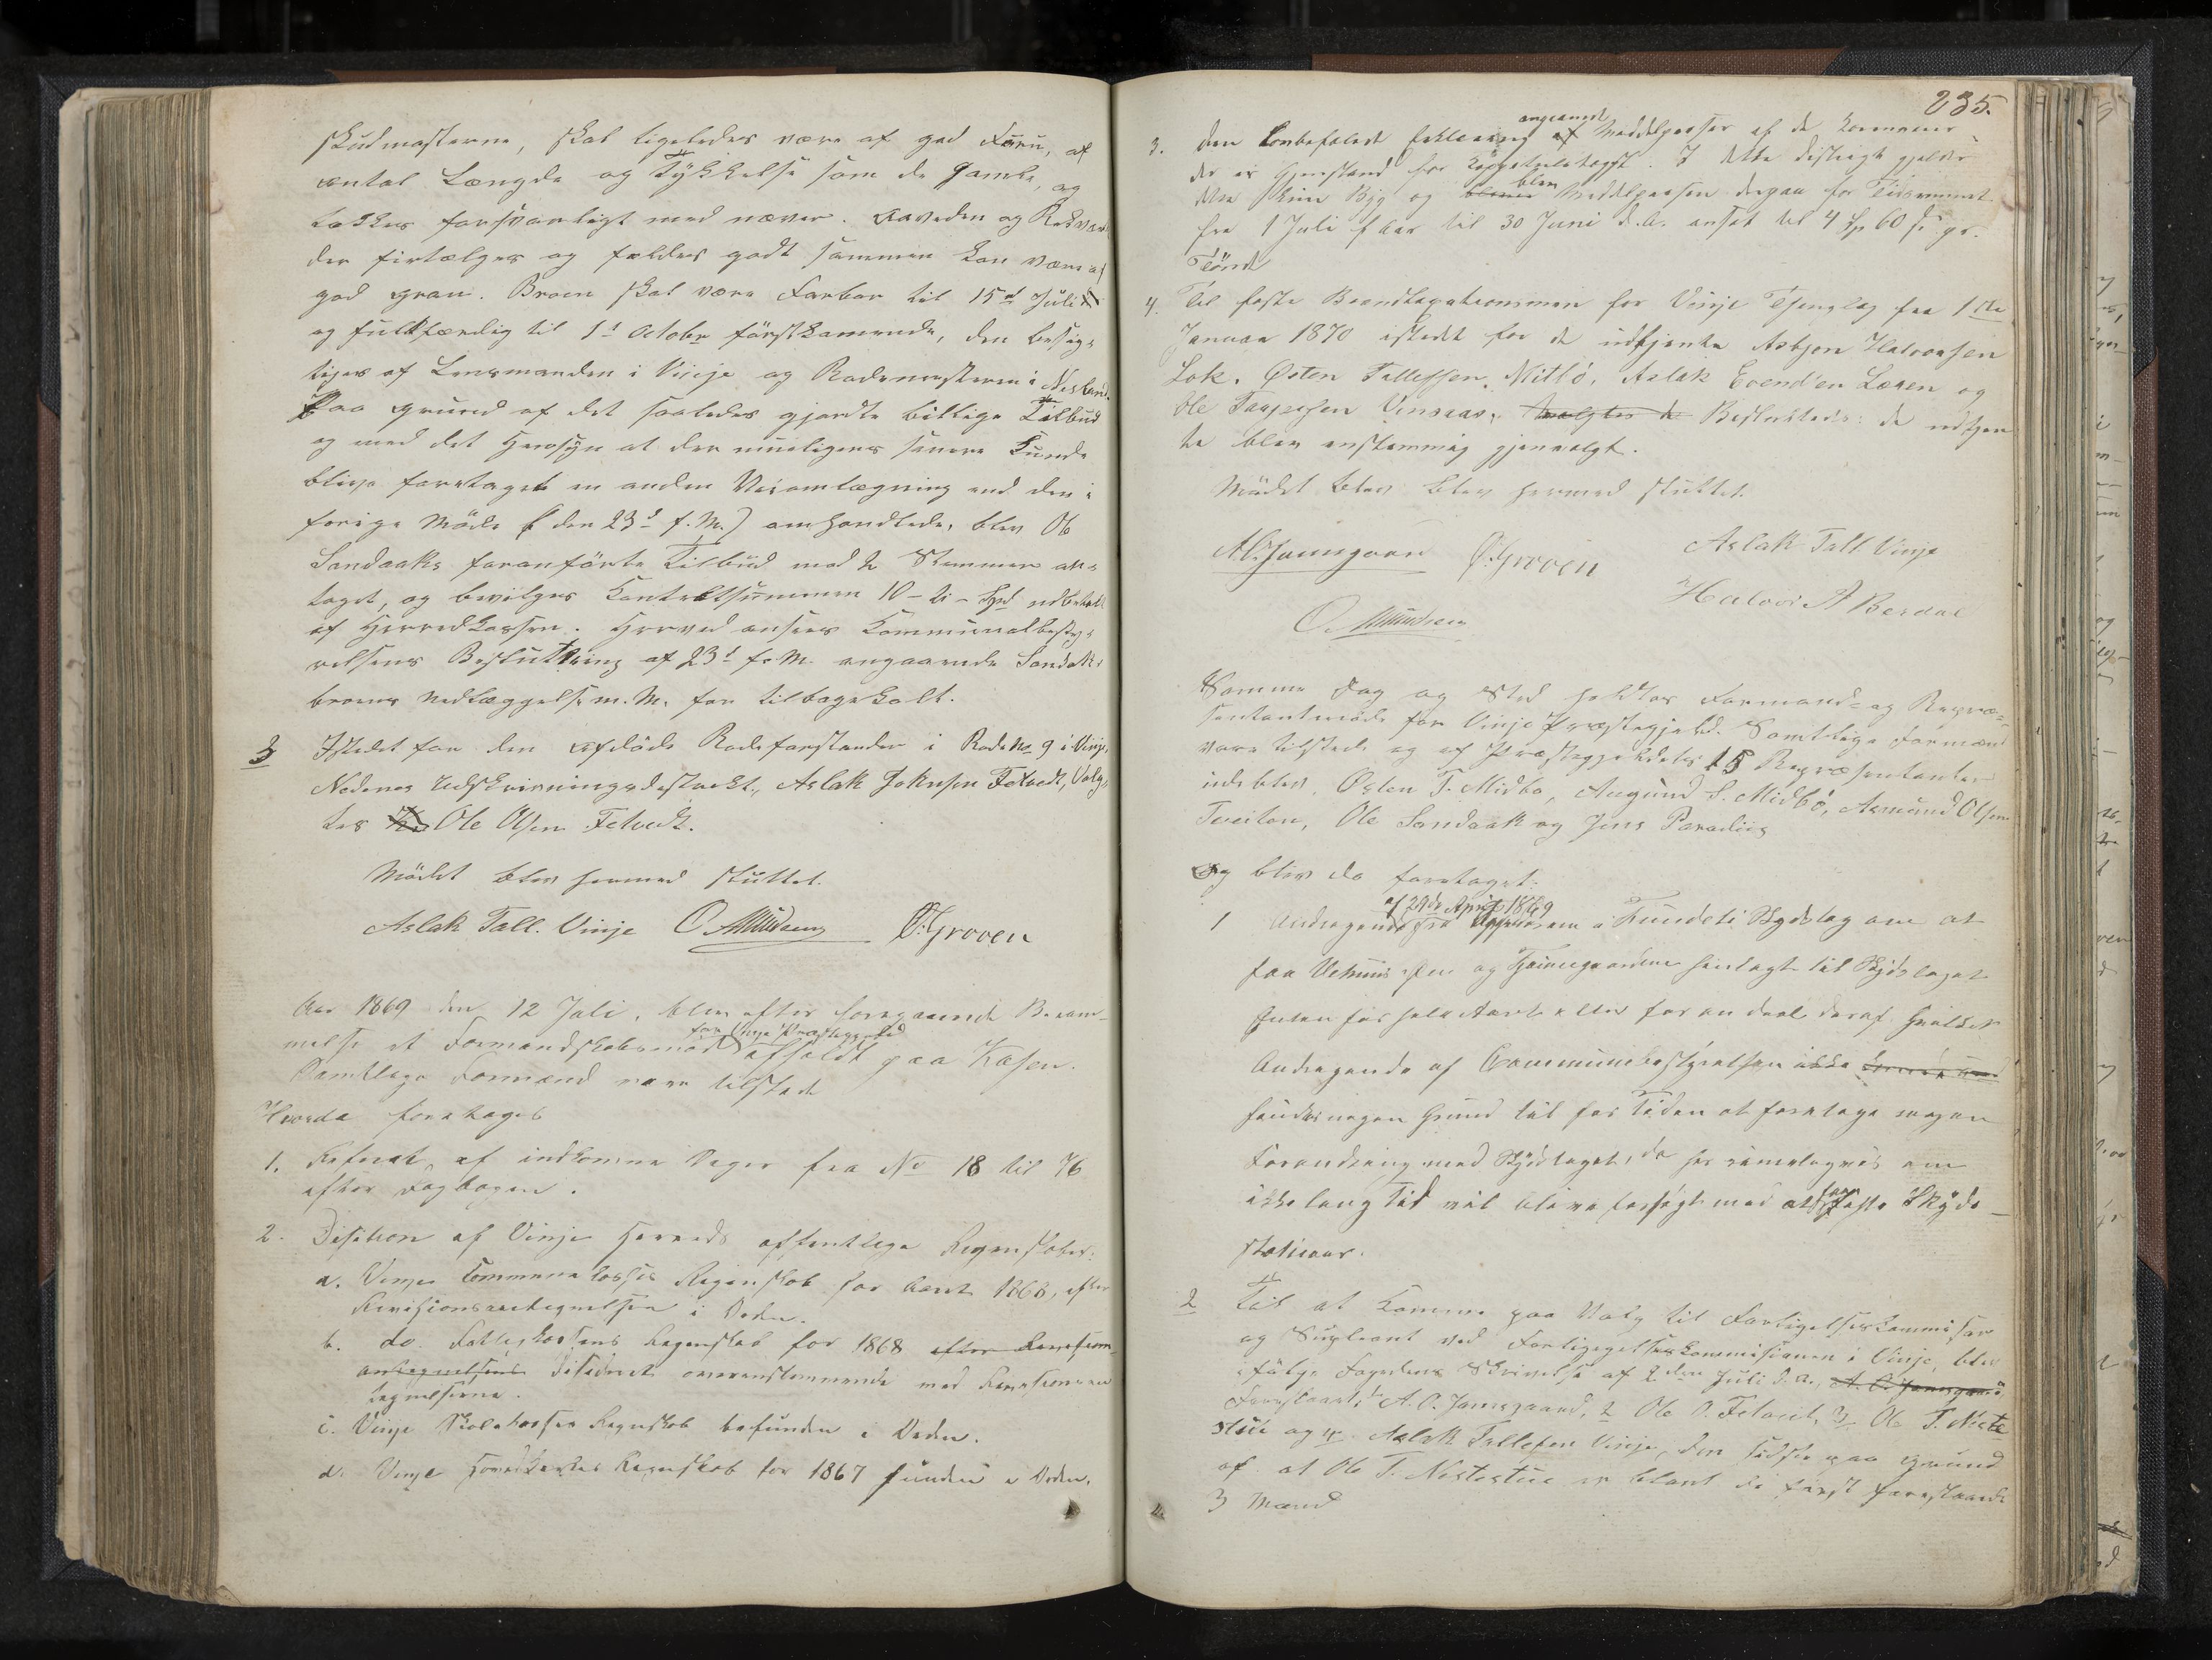 Skudmasterne, skal ligeledes være af god Furu, af
antal Længde og Tykkelse som de gamle, og
tækkes forsvarligt med næver. Aaveden og Rekvær
der firtælges og fældes godt sammen kan være af
god gran. Broen skal være Farbar til 15d Juli
og fuldfærdig til 1st October förstkommende, den besig-
tiges af Lensmanden i Vinje og Rodemesteren i Nesland.
Paa grund af det saaledes gjordte billige Tilbud
og med det Hensyn at der mueligens senere Kunde
blive foretaget en anden Veiomlægning end den i
forige Möde (den 23d f. M.) omhandlede, blev Ole
Sandaaks foranförte Tilbud med Stemmer an-
taget, og bevilges Contraktsummen 10 - ti - Spd udbetalt
af Herredskassen. Herved ansees Kommunalbesty-
relsens Beslutning af 23d f. M. angaaende Sandak-
broens Nedlæggelse m. M. for tilbagekalt.
3 Istedet for den afdöde Rodeforstander i Rode No 9 i Vinje,
Nedenes Udskrivningsdistrekt, Aslak Johnsen Felvedt, Valg-
tes Ole Olsen Felvedt.
Mödet blev hermed sluttet.
Aslak Tall. Vinje O. Amundsen Ø. Groven
Aar 1869 den 12 Juli, blev efter foregaaende Beram-
for Vinje Præstegjeld
melse et Formandskabsmöde afholdt paa Kasen.
Samtlige Formænd vare tilstede
Hvorda foretoges
1. Referat af indkomne Sager fra No 18 til 76
efter Dagbogen.
2. Desition af Vinje Herreds offentlige Regnskaber.
a. Vinje Communekasses Regnskab for Aaret 1868, efter
Revisionsantegnelsen i Orden.
b. do. Fattigkassens Regnskab for 1868 efter Revisions-
antegnelsens Desideret overenstemmende med Revisionsan
tegnelserne.
c. Vinje Skolekasses Regnskab befunden i Orden.
d. Vinje Regnskab for 1867 funden i Orden.
235.
angaaende
3. Den Erklæring af Middelpriser af de Kornvarer
der er Gjenstand for Kapitelstaxt. I dette Distrigt gjelder
blev
dette kun Byg og blever Middelprisen derpaa for Tidsrummet
fra 1 Juli f. Aar til 30 Juni d. A. ansat til 4 Sp 60 s pr.
Tönde
4. Til faste Brandtaxationsmænd for Vinje Thinglag fra 1ste
Januar 1870 istedet for de udtjente Asbjørn Halvorsen
Lok, Østen Tallefsen Mitbø, Aslak Evendsen Lægen og
Ole Targesen Vinsaas, valgtes de Besluttedes: de udtjen
te blev enstemmig gjenvalgt.
Mödet blev blev hermed sluttet.
A. O. Jamsgaard Ø. Groven Aslak Tall. Vinje
O. Amundsen Halvor A Berdal
Samme Dag og Sted holdtes Formands- og Repræ-
sentantmöde for Vinje Præstegjeld. Samtlige Formænd
vare tilstede og af Præstegjeldets 15 Repræsentanter
udeblev Østen T. Midbø, Augund S. Midbø, Asmund Olsen
Tveiten, Ole Sandaak og Jens Paradiis
Og blev da foretaget:
af 29de April 1869
1 Andragende fra Opsidderne i Tundeli Skydslag om at
faa og henlagt til Skydslaget
Enten for hele Aaret eller for en deel deraf. Hvilket
Andragende af Communebestyrelsen ikke
fandtes nogen Grund til for Tiden at foretage nogen
Forandring med Skydslaget, da her rimeligvis om
ikke lang Tid vil blive forsögt med at faa faste Skyds-
stationer.
2 Til at komme paa Valg til Forligelseskommisær
og Supleant ved Forligelseskommisionen i Vinje, blev
ifølge Fogedens Skrivelse af 2den Juli d. A. A. O. Jamsgaard
Foreslaaet: 1 A. O. Jamsgaard, 2 Ole O. Felvedt, 3 Ole T. Neste
stue og 4 Aslak Tallefsen Vinje, den sidste paa Grund
af at Ole T. Nestestue er blant de först foreslaaede
3 Mænd